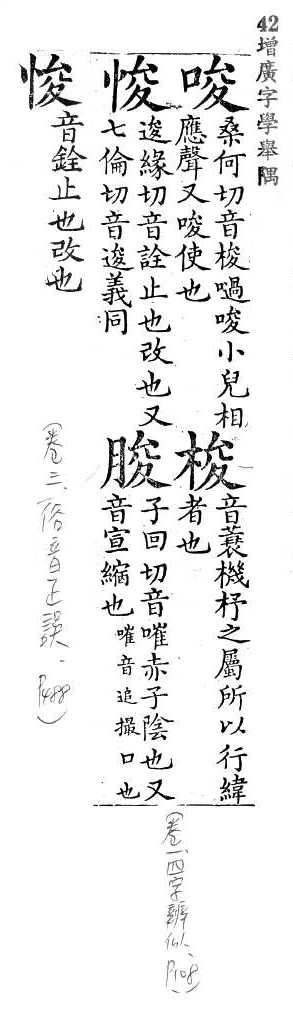 42 增廣字學舉隅
唆
桑何切音梭喎唆小兒相
應聲又唆使也
梭
音蓑機杼之屬所以行緯
者也
悛
逡緣切音詮止也改也又
七倫切音逡義同
朘
子回切音嗺赤子陰也又
音宣縮也嗺音追撮口也
(卷一、四字辨似、P108)
悛
音銓止也改也
(卷三、俗音正誤、P488)